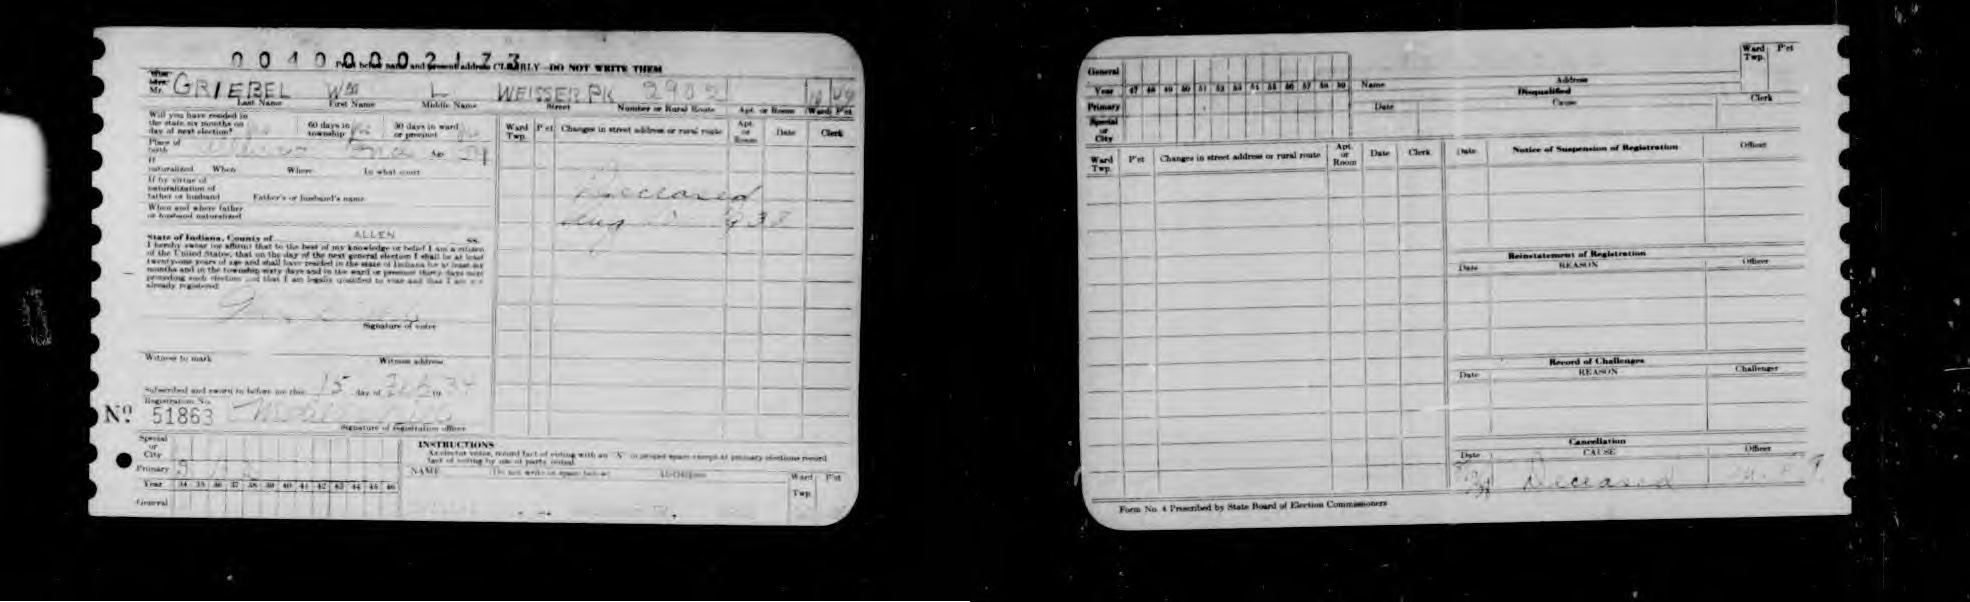 00400002173
Print below name and present address CLEARLY—DO NOT WRITE THEM
Miss
Mrs.
Mr. GRIEBEL Wm L WEISSER PK 2902
Last Name First Name Middle Name Street Number or Rural Route Apt. or Room Ward P'ct
Will you have resided in
the state six months on
day of next election?
60 days in
township
30 days in ward
or precinct
Place of
birth Age
If
naturalized When Where In what court
If by virtue of
naturalization of
father or husband Father's or husband's name
When and where father
or husband naturalized
State of Indiana, County of ALLEN SS.
I hereby swear (or affirm) that to the best of my knowledge or belief I am a citizen
of the United States, that on the day of the next general election I shall be at least
twenty-one years of age and shall have resided in the state of Indiana for at least six
months and in the township sixty days and in the ward or precinct thirty days next
preceding such election and that I am legally qualified to vote and that I am not
already registered.
Signature of voter
Witness to mark Witness address
Subscribed and sworn to before me this 15 day of Feb 19 34
Registration No.
No. 51863
Signature of registration officer
Special
or
City
Primary
Year 34 35 36 37 38 39 40 41 42 43 44 45 46
General
Ward
Twp. P'ct Changes in street address or rural route Apt.
or
Room Date Clerk
Deceased
Aug
INSTRUCTIONS
As elector votes, record fact of voting with an "X" in proper space except at primary elections record
fact of voting by use of party initial.
NAME (Do not write in space below) ADDRESS Ward P'ct
Twp.
General
Year 47 48 49 50 51 52 53 54 55 56 57 58 59
Primary
Special
or
City
Name Address Ward
Twp. P'ct
Disqualified
Date Cause Clerk
Ward
Twp. P'ct Changes in street address or rural route Apt.
or
Room Date Clerk
Date Notice of Suspension of Registration Officer
Reinstatement of Registration
Date REASON Officer
Record of Challenges
Date REASON Challenger
Cancellation
Date CAUSE Officer
Deceased
Form No. 4 Prescribed by State Board of Election Commissioners